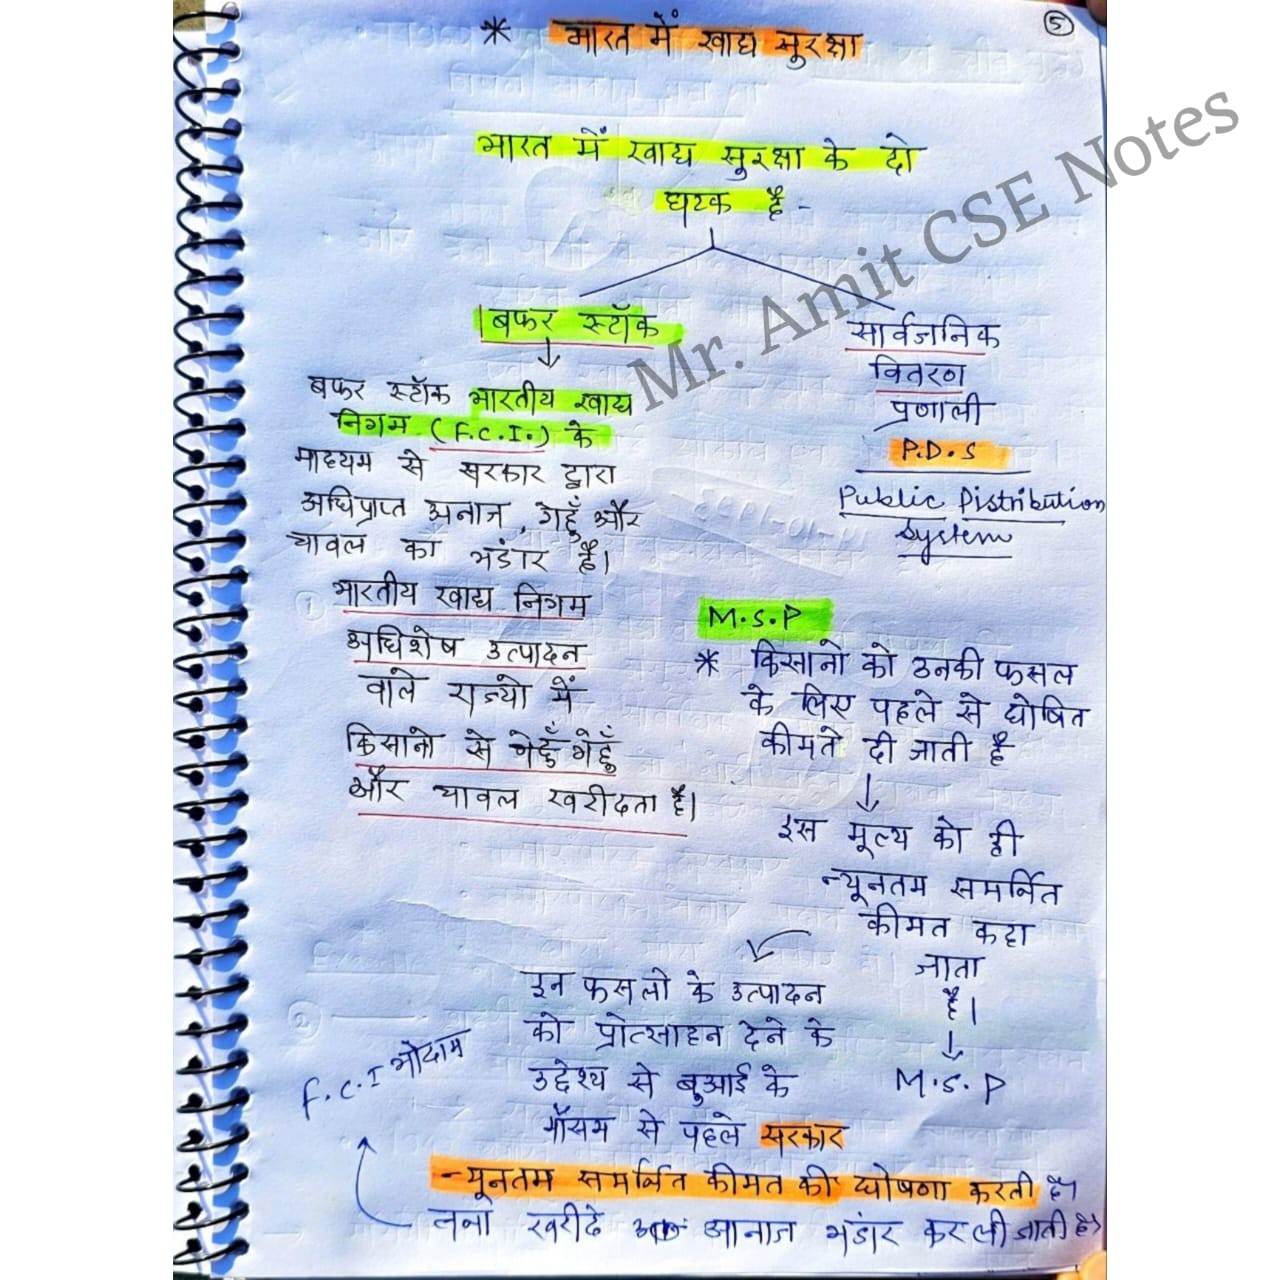 5
* भारत में खाद्य सुरक्षा
भारत में खाद्य सुरक्षा के दो
घटक है -
बफर स्टॉक
बफर स्टॉक भारतीय खाद्य
निगम (F.C.I.) के
माध्यम से सरकार द्वारा
अधिप्राप्त अनाज, गेहूँ और
चावल का भंडार है।
भारतीय खाद्य निगम
अधिशेष उत्पादन
वाले राज्यो में
किसानो से गेहूँ
और चावल खरीदता है।
सार्वजनिक
वितरण
प्रणाली
P.D.S
Public Distribution
System
M.S.P
* किसानो को उनकी फसल
के लिए पहले से घोषित
कीमते दी जाती है
इस मूल्य को ही
न्यूनतम समर्नित
कीमत कहा
जाता
है।
M.S.P
इन फसलो के उत्पादन
को प्रोत्साहन देने के
उद्देश्य से बुआई के
मौसम से पहले सरकार
न्यूनतम समर्नित कीमत की घोषणा करती है।
खरीदे आनाज भंडार कर ली जाती है
F.C.I गोदाम
Mr. Amit CSE Notes